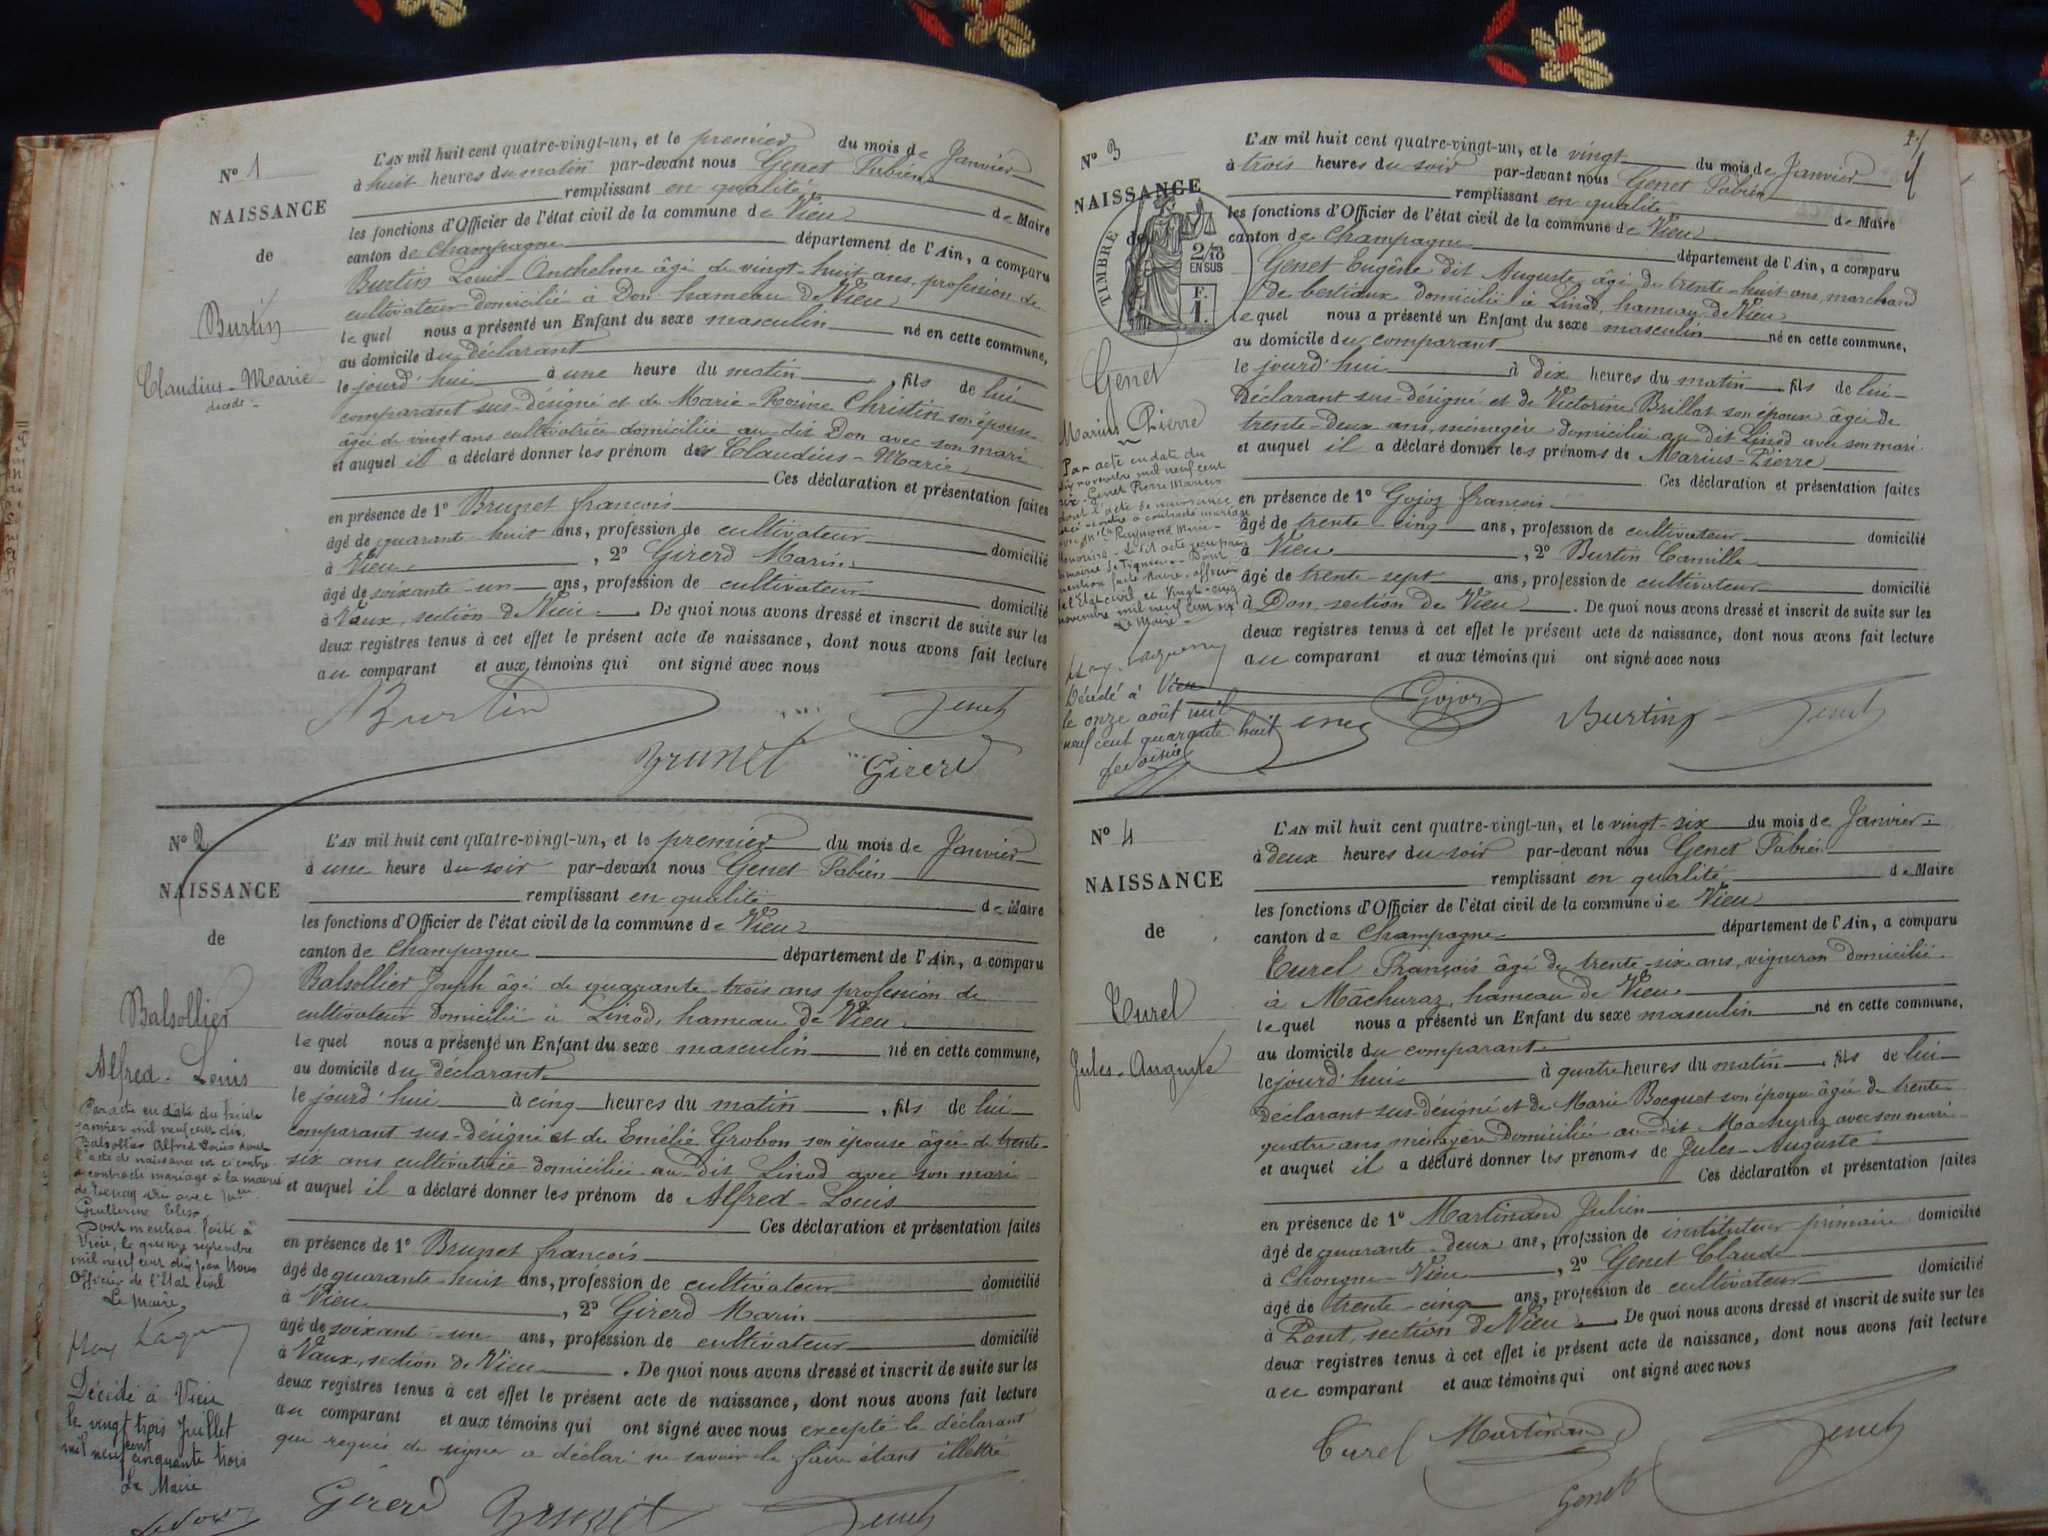 N° 1
NAISSANCE
de
Burtin
Claudius-Marie
L'AN mil huit cent quatre-vingt-un, et le premier du mois de Janvier
à huit heures du matin par-devant nous Genet Fabien
remplissant en qualité de Maire
les fonctions d'Officier de l'état civil de la commune de Vieu
canton de Champagne département de l'Ain, a comparu
Burtin Louis-Anthelme âgé de vingt-huit ans, profession de
cultivateur domicilié à Don hameau de Vieu
lequel nous a présenté un Enfant du sexe masculin né en cette commune,
au domicile du déclarant
le jourd'hui à une heure du matin, fils de lui
comparant sus-désigné et de Marie-Rosine Christin son épouse
âgée de vingt ans cultivatrice domiciliée au dit Don avec son mari
et auquel il a déclaré donner les prénom de Claudius-Marie
Ces déclaration et présentation faites
en présence de 1° Brunet françois
âgé de quarante-huit ans, profession de cultivateur domicilié
à Vieu, 2° Girerd Marin
âgé de soixante-un ans, profession de cultivateur domicilié
à Vaux, section de Vieu. De quoi nous avons dressé et inscrit de suite sur les
deux registres tenus à cet effet le présent acte de naissance, dont nous avons fait lecture
au comparant et aux témoins qui ont signé avec nous
Burtin Genet
Brunet Girerd
N° 2
NAISSANCE
de
Balsollier
Alfred-Louis
Par acte en date du trente
janvier mil neuf cent dix
Balsollier Alfred Louis dont
l'acte de naissance est ci contre
a contracté mariage à la mairie
de Tenay avec
Guillermine Elisa
Pour mention faite à
Vieu, le quinze septembre
mil neuf cent dix par Nous
Officier de l'Etat civil
Le Maire,
Décédé à Vieu
le vingt trois Juillet
mil neuf cent cinquante trois
Le Maire
L'AN mil huit cent quatre-vingt-un, et le premier du mois de Janvier
à une heure du soir par-devant nous Genet Fabien
remplissant en qualité de Maire
les fonctions d'Officier de l'état civil de la commune de Vieu
canton de Champagne département de l'Ain, a comparu
Balsollier Joseph âgé de quarante-trois ans profession de
cultivateur domicilié à Linod, hameau de Vieu
lequel nous a présenté un Enfant du sexe masculin né en cette commune,
au domicile du déclarant
le jourd'hui à cinq heures du matin, fils de lui
comparant sus-désigné et de Emélie Grobon son épouse âgée de trente-
six ans cultivatrice domiciliée au dit Linod avec son mari
et auquel il a déclaré donner les prénom de Alfred-Louis
Ces déclaration et présentation faites
en présence de 1° Brunet françois
âgé de quarante-huit ans, profession de cultivateur domicilié
à Vieu, 2° Girerd Marin
âgé de soixant-un ans, profession de cultivateur domicilié
à Vaux, section de Vieu. De quoi nous avons dressé et inscrit de suite sur les
deux registres tenus à cet effet le présent acte de naissance, dont nous avons fait lecture
au comparant et aux témoins qui ont signé avec nous excepté le déclarant
qui requis de signer a déclaré ne savoir le faire étant illettré
Girerd Brunet Genet
N° 3
NAISSANCE
de
TIMBRE
2/10
EN SUS
F.
1.
Genet
Marius-Pierre
Par acte en date du
dix novembre mil neuf cent
six Genet Pierre Marius
dont l'acte de naissance
est ci-contre a contracté mariage
avec Raymond Marie-
mention faite
l'Etat civil le Vingt-cinq
novembre mil neuf cent six
Le Maire
Décédé à Vieu
le onze août mil
neuf cent quarante huit
L'AN mil huit cent quatre-vingt-un, et le vingt du mois de Janvier
à trois heures du soir par-devant nous Genet Fabien
remplissant en qualité de Maire
les fonctions d'Officier de l'état civil de la commune de Vieu
canton de Champagne département de l'Ain, a comparu
Genet Eugène dit Auguste âgé de trente-huit ans, marchand
de bestiaux domicilié à Linod, hameau de Vieu
lequel nous a présenté un Enfant du sexe masculin né en cette commune,
au domicile du comparant
le jourd'hui à dix heures du matin, fils de lui
déclarant sus-désigné et de Victorine Brillat son épouse âgée de
trente-deux ans, ménagère domiciliée au dit Linod avec son mari
et auquel il a déclaré donner les prénoms de Marius-Pierre
Ces déclaration et présentation faites
en présence de 1° Gojoz françois
âgé de trente-cinq ans, profession de cultivateur domicilié
à Vieu, 2° Burtin Camille
âgé de trente-sept ans, profession de cultivateur domicilié
à Don, section de Vieu. De quoi nous avons dressé et inscrit de suite sur les
deux registres tenus à cet effet le présent acte de naissance, dont nous avons fait lecture
au comparant et aux témoins qui ont signé avec nous
Genet Gojoz Burtin Genet
N° 4
NAISSANCE
de
Turel
Jules-Auguste
L'AN mil huit cent quatre-vingt-un, et le vingt-six du mois de Janvier
à deux heures du soir par-devant nous Genet Fabien
remplissant en qualité de Maire
les fonctions d'Officier de l'état civil de la commune de Vieu
canton de Champagne département de l'Ain, a comparu
Turel François âgé de trente-six ans, vigneron domicilié
à Mâchuraz, hameau de Vieu
lequel nous a présenté un Enfant du sexe masculin né en cette commune,
au domicile du comparant
le jourd'hui à quatre heures du matin, fils de lui
déclarant sus-désigné et de Marie Bocquet son épouse âgée de trente-
quatre ans ménagère domiciliée au dit Machuraz avec son mari
et auquel il a déclaré donner les prénoms de Jules-Auguste
Ces déclaration et présentation faites
en présence de 1° Martinand Julien
âgé de quarante-deux ans, profession de instituteur primaire domicilié
à Chongne-Vieu, 2° Genet Claude
âgé de trente-cinq ans, profession de cultivateur domicilié
à Pont, section de Vieu. De quoi nous avons dressé et inscrit de suite sur les
deux registres tenus à cet effet le présent acte de naissance, dont nous avons fait lecture
au comparant et aux témoins qui ont signé avec nous
Turel Martinand Genet
Genet